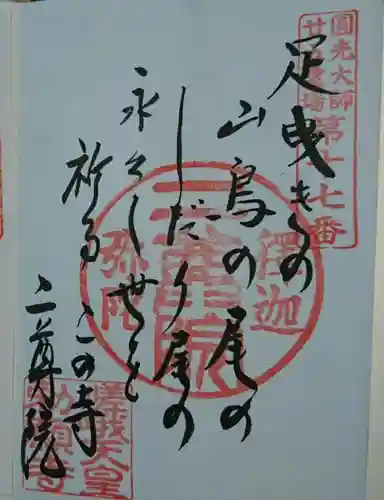 圓光大師
廿五霊場
第十七番
足曳きの
山鳥の尾の
しだり尾の
永々し世を
祈るこの寺
二尊院
釋迦
二尊院
弥陀
嵯峨天皇
勅願寺